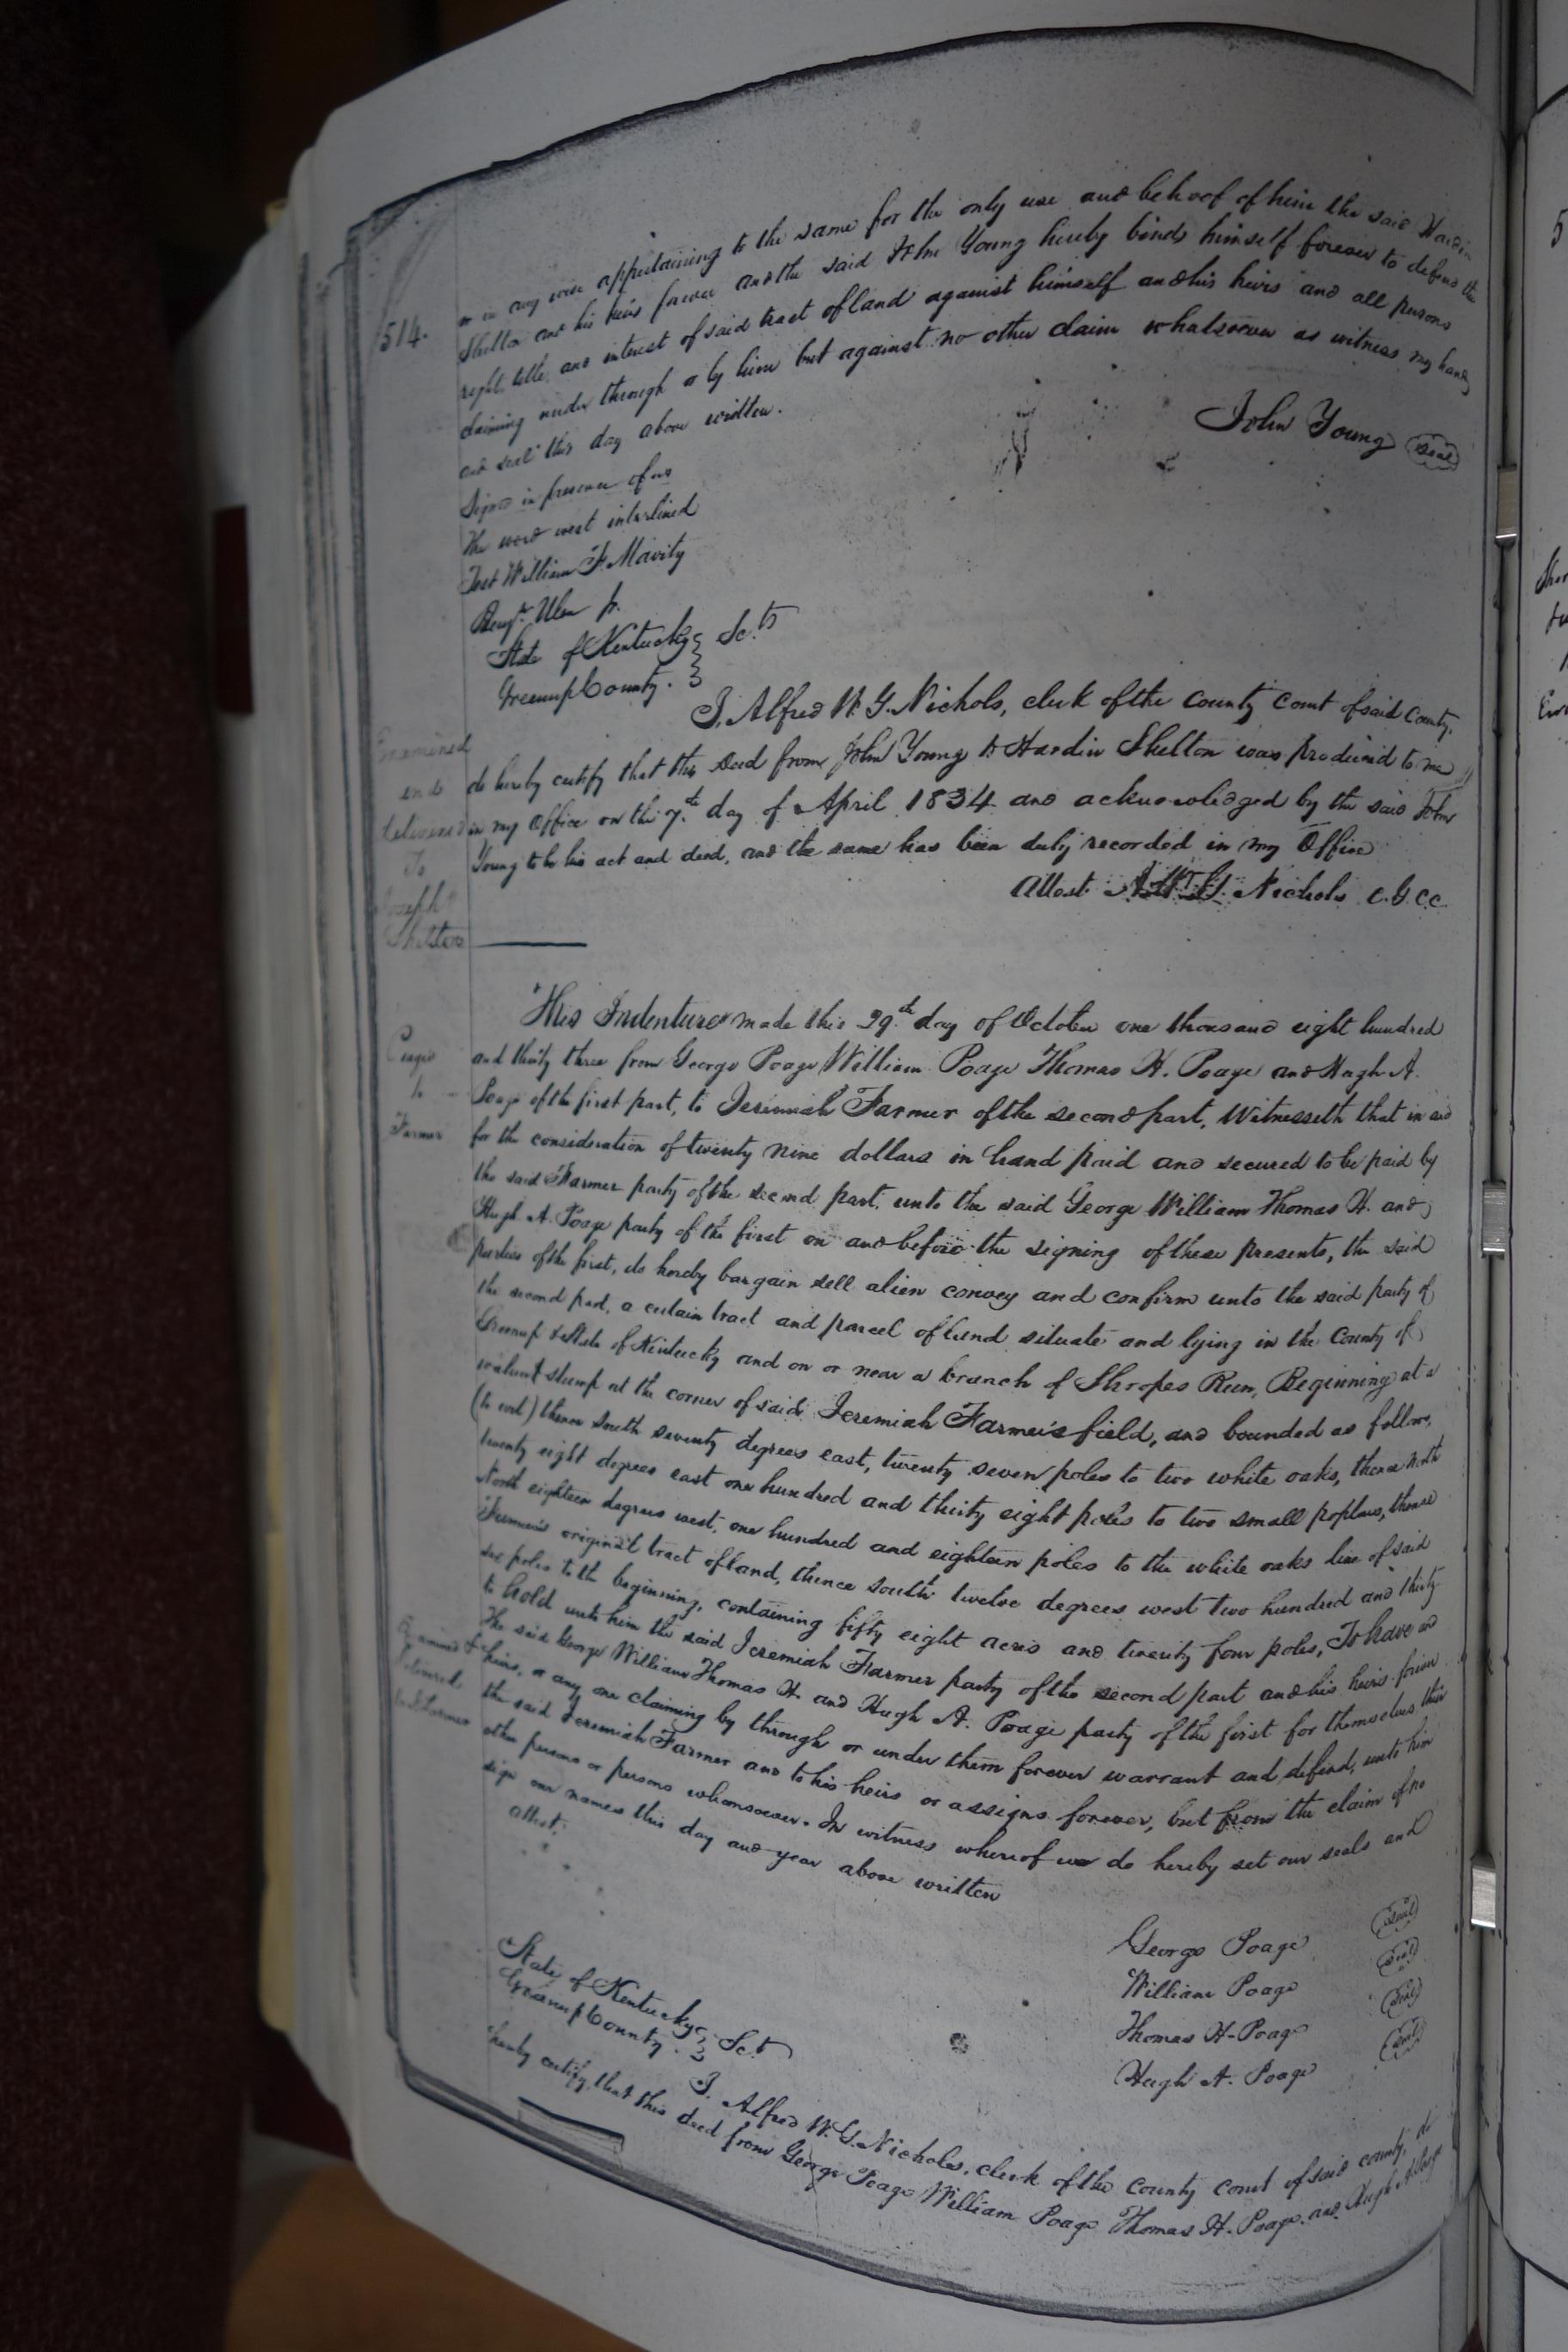 514.
or in any wise appertaining to the same for the only use and behoof of him the said Hardin
Shelton and his heirs forever and the said John Young hereby binds himself forever to defend the
right title and interest of said tract of land against himself and his heirs and all persons
claiming under through or by him but against no other claim whatsoever as witness my hand
and seal this day above written.
John Young Seal
Signed in presence of us
The word west interlined
Test William F. Mavity
Benjn. Ulen jr.
State of Kentucky } Sct
Greenup County. }
I, Alfred W. G. Nichols, clerk of the county court of said County,
do hereby certify that this deed from John Young to Hardin Shelton was produced to me
in my Office on the 7th day of April 1834 and acknowledged by the said John
Young to be his act and deed, and the same has been duly recorded in my Office
Attest A.W.G. Nichols c.G.cc
Examined
and
delivered
To
Joseph
Shelton
This Indenture made this 29th day of October one thousand eight hundred
and thirty three from George Poage William Poage Thomas H. Poage and Hugh A.
Poage of the first part, to Jeremiah Farmer of the second part, Witnesseth that in and
for the consideration of twenty nine dollars in hand paid and secured to be paid by
the said Farmer party of the second part, unto the said George William Thomas H. and
Hugh A. Poage party of the first on and before the signing of these presents, the said
parties of the first, do hereby bargain sell alien convey and confirm unto the said party of
the second part, a certain tract and parcel of land situate and lying in the County of
Greenup & State of Kentucky and on or near a branch of Shropes Run, Beginning at a
walnut stump at the corner of said Jeremiah Farmer's field, and bounded as follows,
(to wit) thence South seventy degrees east, twenty seven poles to two white oaks, thence north
twenty eight degrees east one hundred and thirty eight poles to two small poplars, thence
North eighteen degrees west, one hundred and eighteen poles to the white oaks line of said
Farmer's original tract of land, thence south twelve degrees west two hundred and thirty
six poles to the beginning, containing fifty eight acres and twenty four poles, To have and
to hold unto him the said Jeremiah Farmer party of the second part and his heirs forever
The said George William Thomas H. and Hugh A. Poage party of the first for themselves their
heirs, or any one claiming by through or under them forever warrant and defend, unto him
the said Jeremiah Farmer and to his heirs or assigns forever, but from the claim of no
other persons or persons whomsoever. In witness whereof we do hereby set our seals and
sign our names this day and year above written
Attest.
Poage
to
Farmer
Examined &
delivered
George Poage Seal
William Poage Seal
Thomas H. Poage Seal
Hugh A. Poage Seal
State of Kentucky } Sct
Greenup County. }
I. Alfred W. G. Nichols, clerk of the county court of said county, do
hereby certify, that this deed from George Poage William Poage Thomas H. Poage and Hugh A. Poage